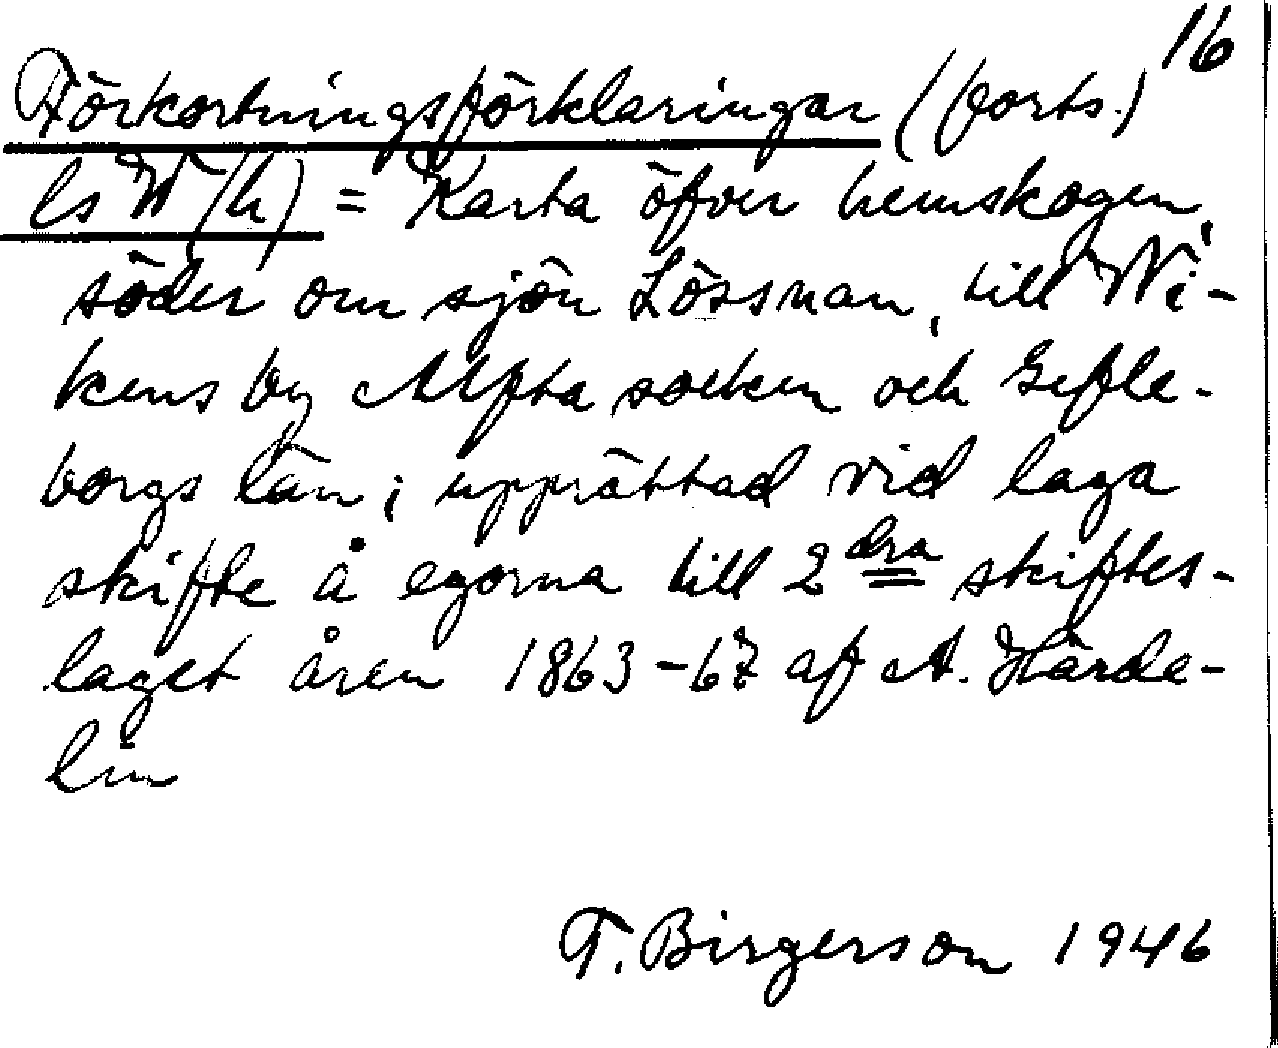 16
Förkortningsförklaringar (forts.)
ls W (h) = Karta öfver hemskogen,
söder om sjön Lössnan, till Wi-
kens by Alfta socken och Gefle-
borgs län; upprättad vid laga
skifte å egorna till 2dra skiftes-
laget åren 1863-67 af A. Härde-
lin
T. Birgerson 1946